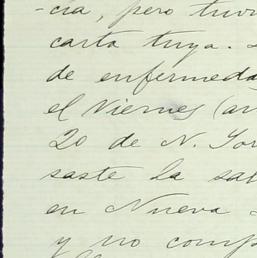 -cia, pero tuv
carta tuya.
de enfermeda
el Viernes (an
20 de N. Yor
saste la sa
en Nueva
y no comp